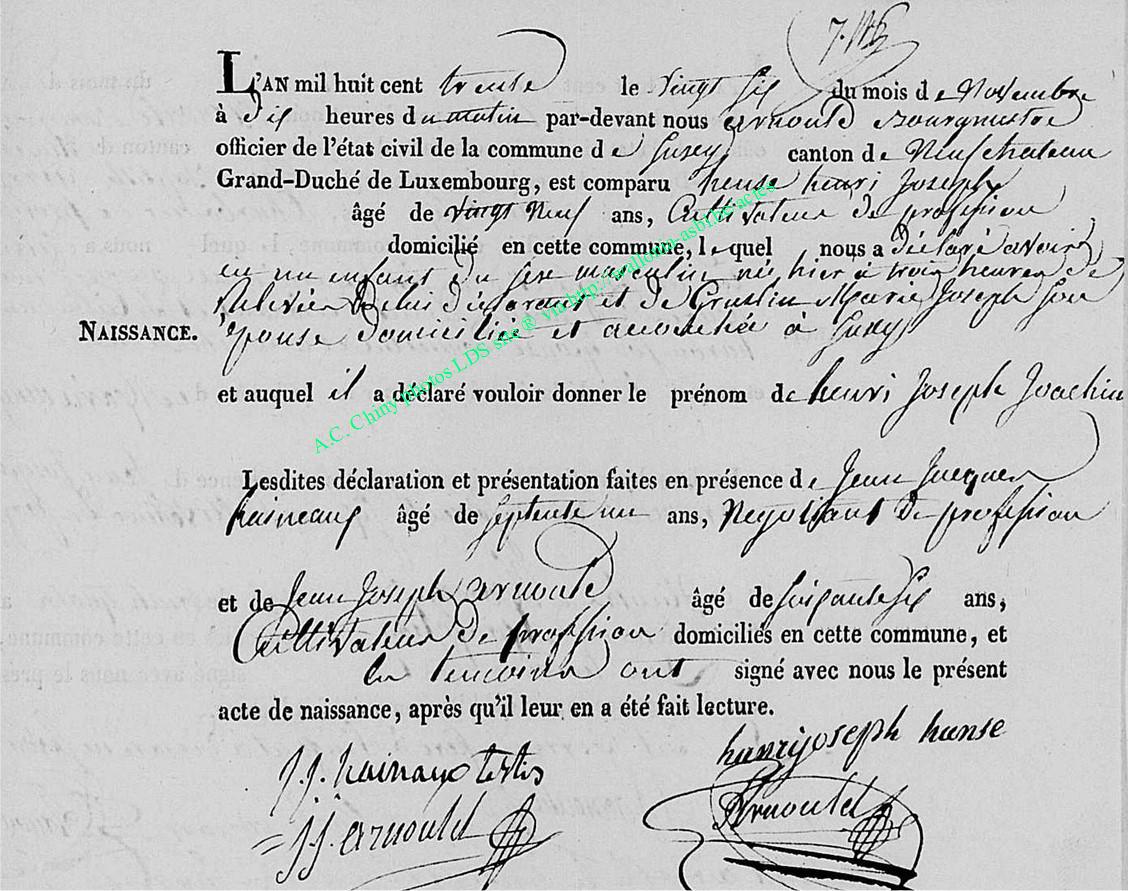 L'AN mil huit cent trente le vingt six du mois de Novembre
à dix heures du matin par-devant nous arnould Bourgmestre
officier de l'état civil de la commune de Suxey canton de Neufchateau
Grand-Duché de Luxembourg, est comparu henri Joseph
âgé de vingt Neuf ans, Cultivateur de profession
domicilié en cette commune, lequel nous a déclaré avoir
eu un enfant du sexe masculin née hier à trois heures de
Relevée de lui déclarant et de Marie Joseph Son
NAISSANCE. Epouse domiciliée et accouchée à Suxy
et auquel il a déclaré vouloir donner le prénom de henri Joseph Joachim
Lesdites déclaration et présentation faites en présence de Jean Jacques
haineaux âgé de septente un ans, Negotiant de profession
et de Jean Joseph arnould âgé de soixante six ans,
Cultivateur de profession domiciliés en cette commune, et
les temoins ont signé avec nous le présent
acte de naissance, après qu'il leur en a été fait lecture.
j.j. hainaux testis
henrij joseph hanse
j.j. arnould
Arnould
A.C. Chiny photos LDS site ® via http://wallonia-asbl.net/actes